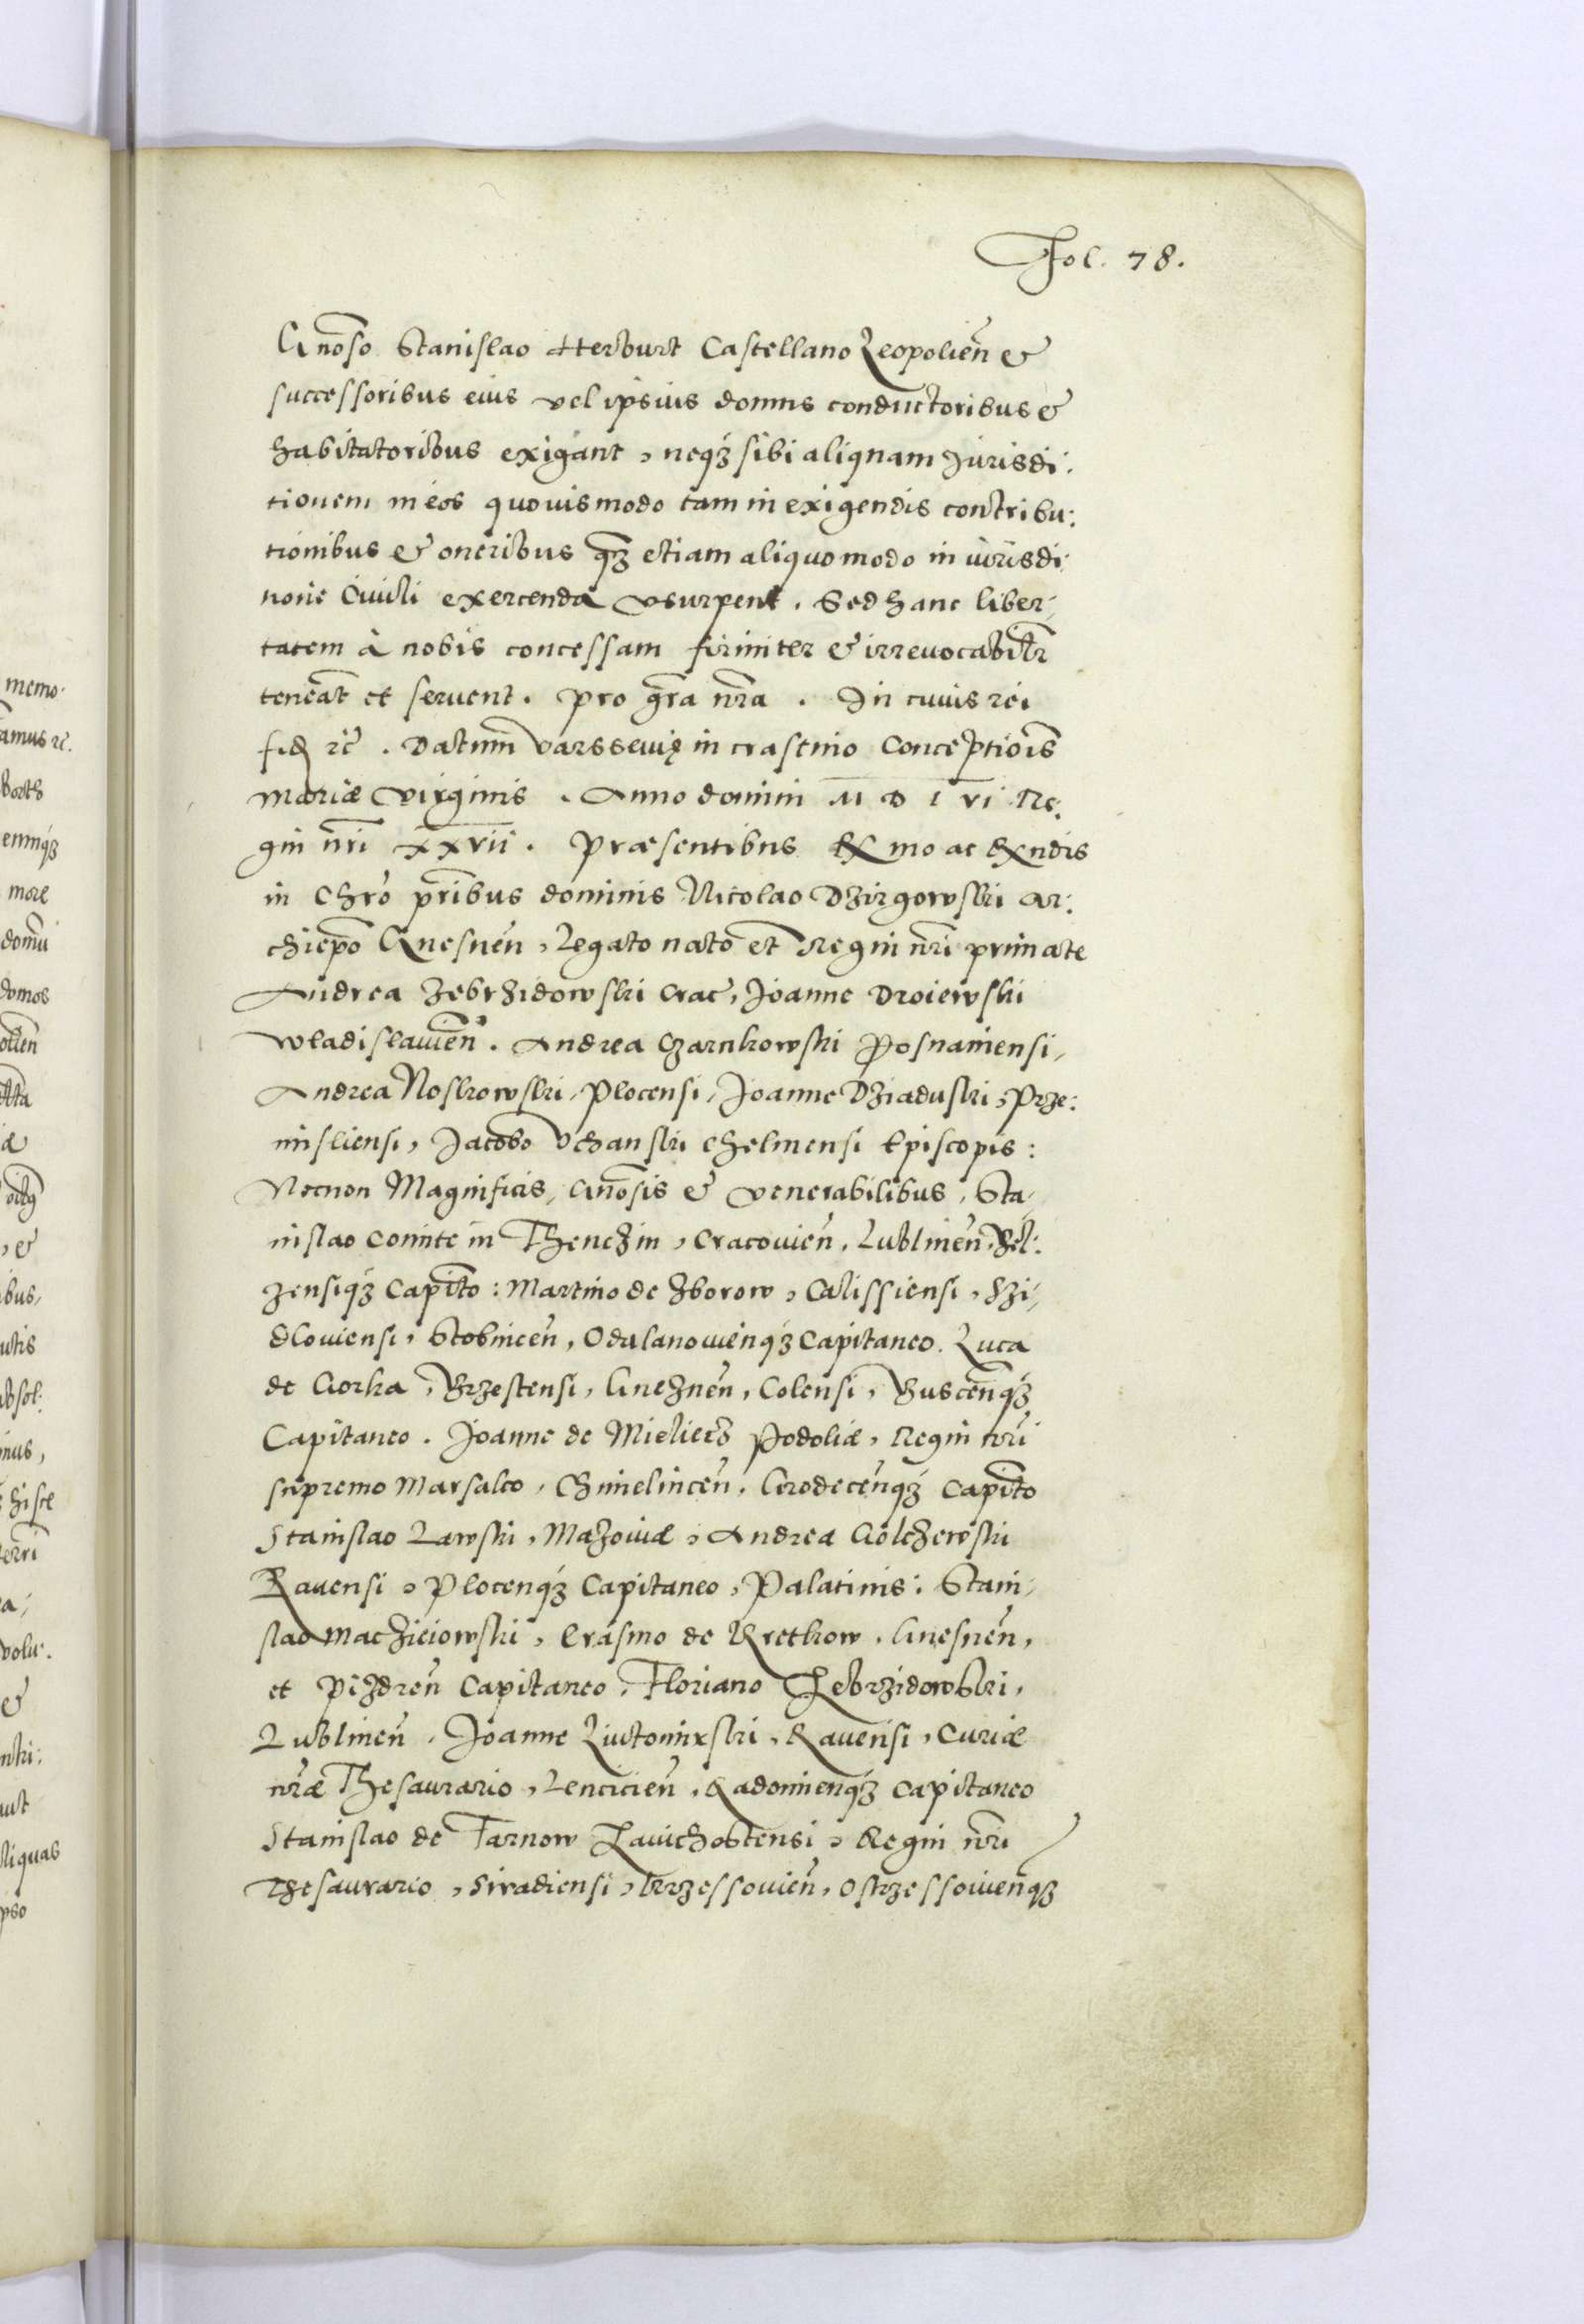 Fol. 78.
Gnōso Stanislao Herburt Castellano Leopolien̄ &
successoribus eius vel ipsius domus conductoribus &
habitatoribus exigant, neqꝫ sibi aliquam Jurisdi:
tionem in eos quovismodo tam in exigendis contribu:
tionibus & oneribus qꝫ etiam aliquo modo in iurisdi:
none Civili exercenda vsurpent. Sed hanc liber,
tatem à nobis concessam firmiter & irreuocabilr̄
teneāt et seruent. Pro gr̄a nr̄a. In cuius rei
fidē rc̄. Datum̄ Varssevię in crastino Conceptiois̄
Mariæ Virginis. Anno domini M D L VI Re:
gni nr̄i xxvii. Præsentibus Rx̄mo ac Rx̄ndis
in Chr̄o pr̄ibus dominis Nicolao Dzirgowski Ar:
chiepō Gnesnen̄, Legato nato et Regni nr̄i primate
Andrea Zebrzidowski Crac̄, Joanne Droiewski
Wladislauien̄. Andrea Czarnkowski Posnaniensi,
Andrea Noskowski, Plocensi, Joanne Dziaduski, Prze:
misliensi, Jacobo Vchanski Chelmensi Episcopis:
Necnon Magnificis, Gnōsis & Venerabilibus, Sta,
nislao Comite in Thenczin, Cracouien̄, Lublinen̄, Bel:
zensiqꝫ Capit̄o: Martino de Zborow, Calissiensi, Szi,
dloviensi, Stobnicen̄, Odalanouienqꝫ Capitaneo. Luca
de Gorka, Brzestensi, Gneznen̄, Colensi, Buscen̄qꝫ
Capitaneo. Joanne de Mieliecz Podoliæ, Regni nr̄i
supremo Marsalco, Chmielnicen̄, Grodecen̄qꝫ Capit̄o
Stanislao Lawski, Mazoviæ, Andrea Golczewski
Ravensi, Plocenqꝫ Capitaneo, Palatinis: Stani,
slao Macziciowski, Erasmo de Kretkow, Gnesnen̄,
et Pizdren̄ Capitaneo, Floriano Zebrzidowski,
Lublinen̄, Joanne Liutomirski, Ravensi, Curiæ
nr̄æ Thesaurario, Lencicien̄, Radomienqꝫ Capitaneo
Stanislao de Tarnow Zavichostensi, Regni nr̄i
Thesaurario, Siradiensi, Krzessovien̄, Ostrzessovienqꝫ